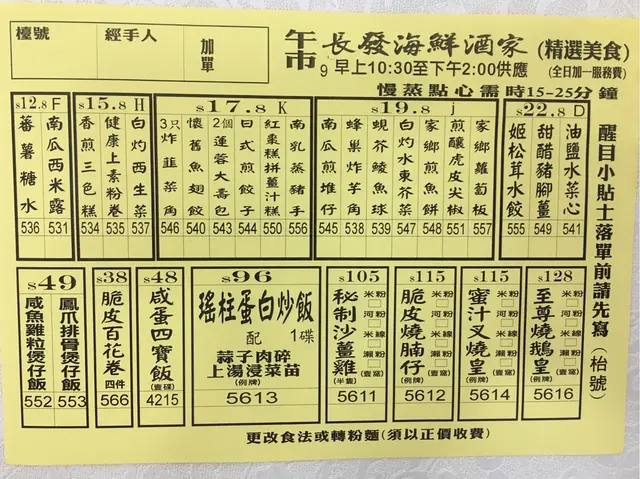 檯號
經手人
加單
午市
長發海鮮酒家 (精選美食)
9 早上10:30至下午2:00供應 (全日加一服務費)
慢蒸點心需時15-25分鐘
$12.8 F
南瓜西米露 531
蕃薯糖水 536
$15.8 H
白灼西生菜 537
健康上素粉卷 535
香煎三色糕 534
$17.8 K
南乳蒸豬手 556
紅棗糕拼薑汁糕 550
日式煎餃子 544
2個蓮蓉大壽包 543
懷舊魚翅餃 540
3只炸韮菜角 546
$19.8 j
家鄉蘿蔔板 507
煎釀虎皮尖椒 551
家鄉煎魚餅 548
白灼水東芥菜 547
蜆芥鯪魚球 539
蜂巢炸芋角 538
南瓜煎堆仔 545
$22.8 D
油鹽水菜心 541
甜醋豬腳薑 549
姬松茸水餃 555
醒目小貼士落單前請先寫(枱號)
$49
鳳爪排骨煲仔飯 553
咸魚雞粒煲仔飯 552
$38
脆皮百花卷 四件
566
$48
咸蛋四寶飯
(壹碟)
4215
$96
瑤柱蛋白炒飯
配 1碟
蒜子肉碎
上湯浸菜苗
(例牌)
5613
$105
秘制沙薑雞
(半隻)
米粉
河粉
米線
瀨粉
(壹窩)
5611
$115
脆皮燒腩仔
(例牌)
米粉
河粉
米線
瀨粉
(壹窩)
5612
$115
蜜汁叉燒皇
(例牌)
米粉
河粉
米線
瀨粉
(壹窩)
5614
$128
至尊燒鵝皇
(例牌)
米粉
河粉
米線
瀨粉
(壹窩)
5616
更改食法或轉粉麵(須以正價收費)